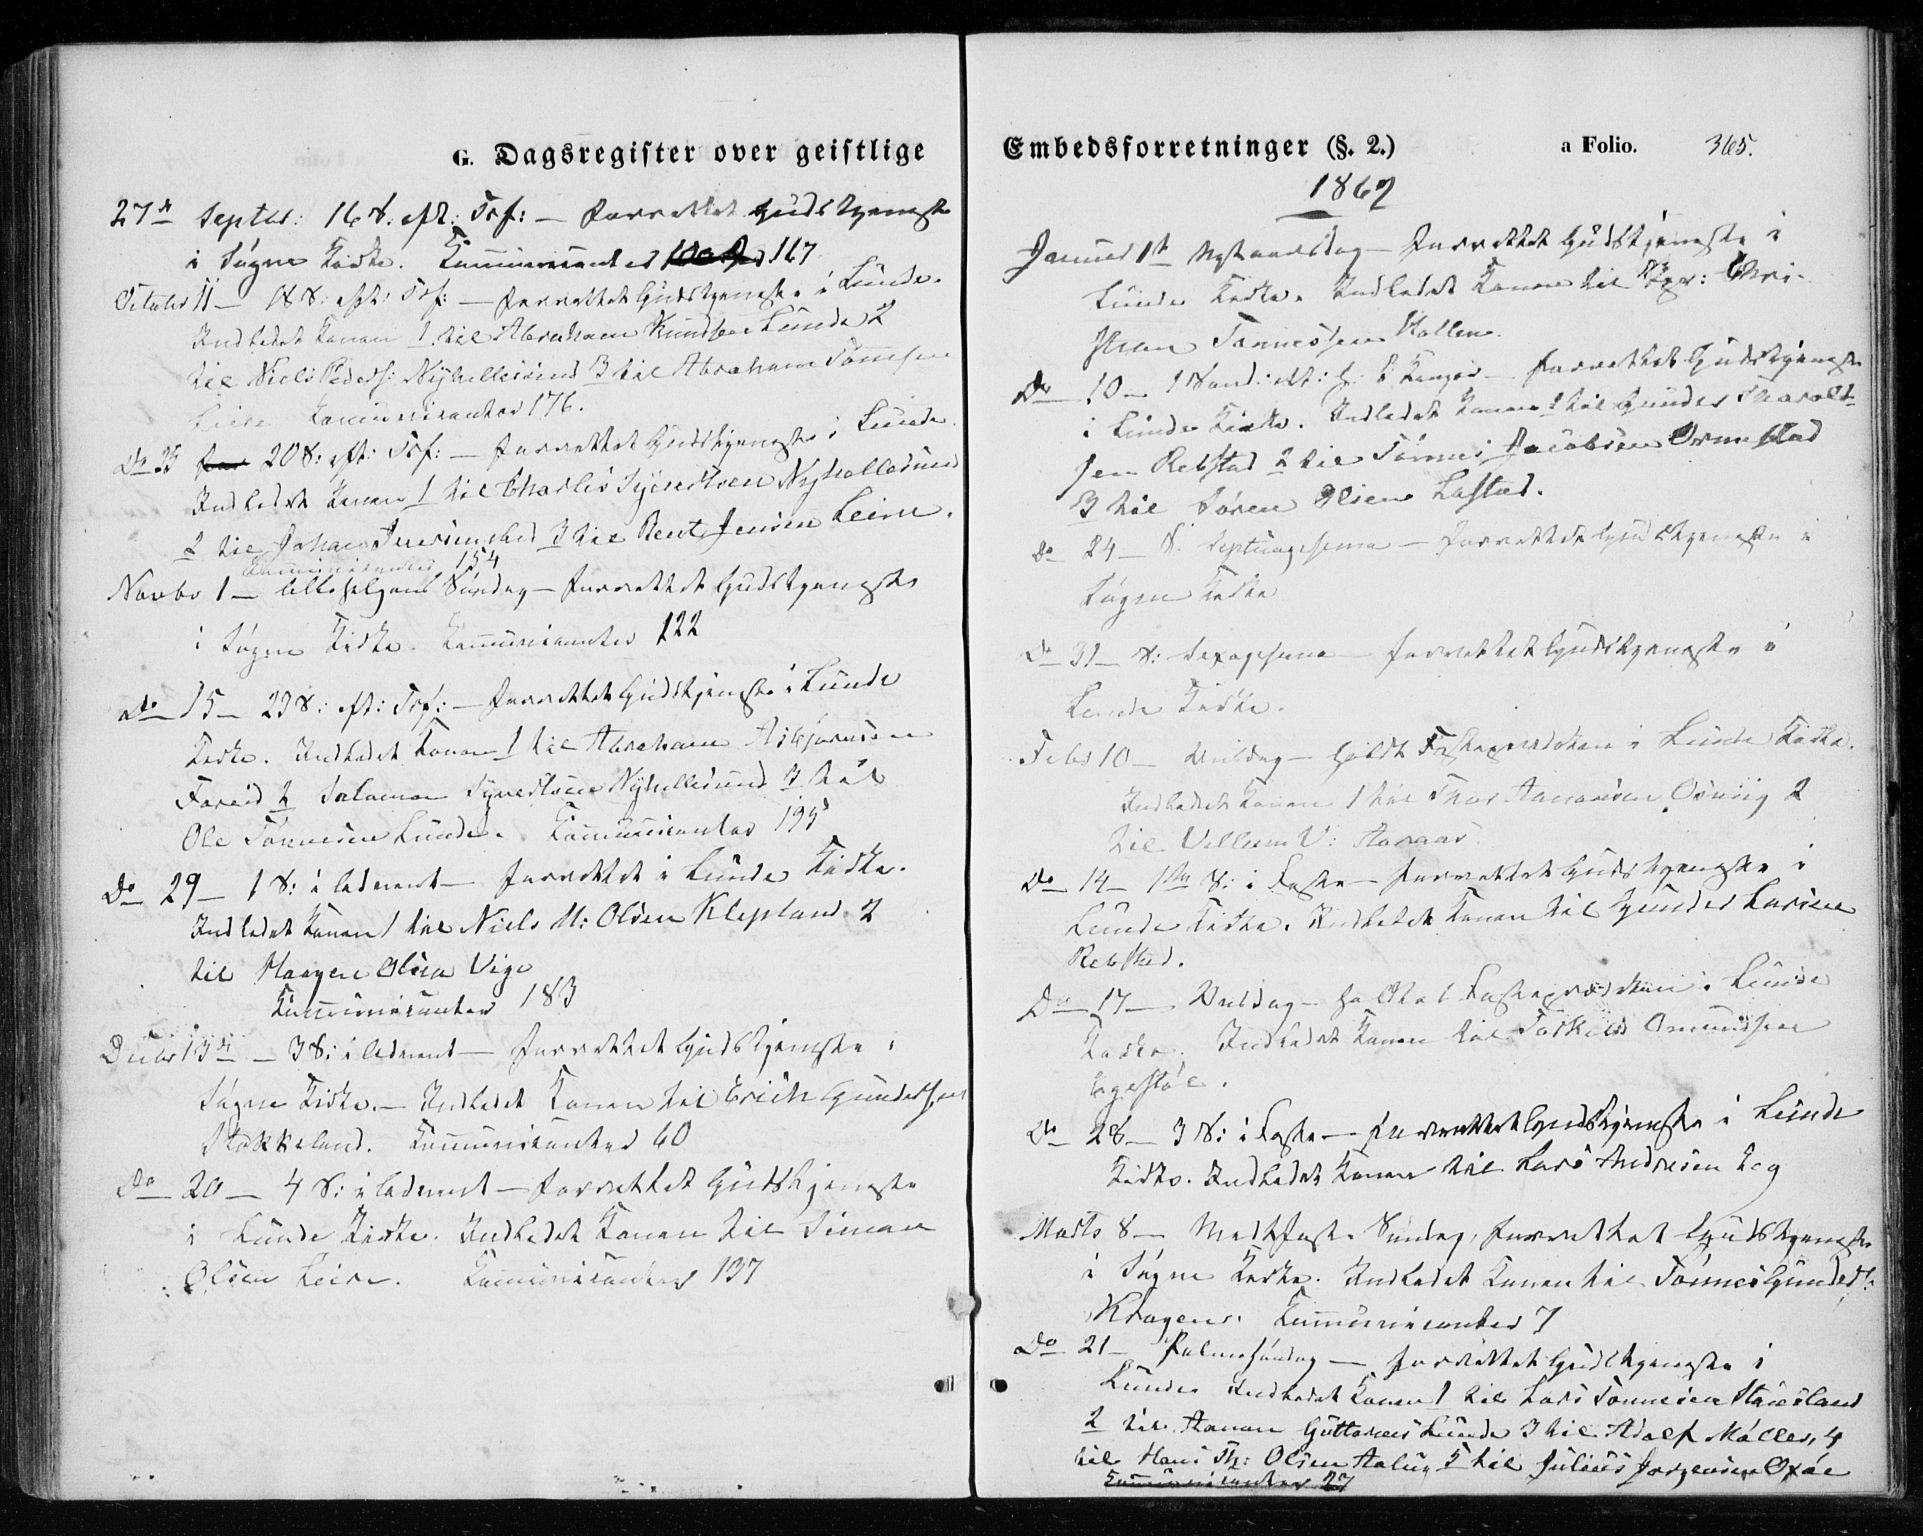 G. Dagsregister over geistlige
27de Septbr: 16 S. eft: Trf: — forrettet Gudstjeneste
i Søgne Kirke. Communicanter 117
October 11 — 18 S: eft: Trf: — forrettet Gudstjeneste i Lunde.
Indledet Konen 1 til Abraham Knudsen Lunde 2
til Niels Peders: Nyhellesund 3 til Abraham Tønnesen
Leire Communicanter 176.
Do 25 20 S: eft: Trf: — forrettet Gudstjeneste i Lunde
Indledet Konen 1 til Charlis Syvertsen Nyhellesund
2 til Johan 3 til Bent Jensen Leire.
Communicanter 154
Novbr 1 — Allehelgens Søndag — forrettet Gudstjeneste
i Søgne Kirke. Communicanter 122
do 15 — 23 S: eft: Trf: — forrettet Gudstjeneste i Lunde
Kirke. Indledet Konen 1 til Abraham Asbjørnsen
2 Salomon Syvertsen Nyhellesund 3 til
Ole Tønnesen Lunde. Communicanter 195
Do 29 — 1 S: i Advent — forrettet i Lunde Kirke.
Indledet Konen 1 til Niels M: Olsen Klepland 2
til Haagen Olsen Vige
Communicanter 183
Decbr 13de — 3 S: i Advent — forrettet Gudstjeneste i
Søgne Kirke. — Indledet Konen til Erich Gundersen
Stokkeland. Communicanter 60
Do 20 — 4 S: i Advent — forrettet Gudstjeneste
i Lunde Kirke. Indledet Konen til Simon
Olsen Leire. Communicanter 137
Embedsforretninger (§. 2.) a Folio. 365.
1869
Januar 1ste Nytaarsdag — forrettet Gudstjeneste i
Lunde Kirke. Indledet Konen til Chri-
stian Tønnessen Hollen
Do 10 — 1 Sønd: eft: H. 3 Konger — forrettet Gudstjeneste
i Lunde Kirke. Indledet Konen 1 til Gunder Tharald-
sen Rebstad 2 til Tønnes Jacobsen Ormestad
3 til Søren Olsen Lastad.
Do 24 — S. Septuagesima — forrettet Gudstjeneste i
Søgne Kirke
Do 31 — S: Sexagesima — forrettet Gudstjeneste i
Lunde Kirke.
Febr 10 — Onsdag — holdt Fasteprædiken i Lunde Kirke.
Indledet Konen 1 til Thor Aanonsen 2
til Villum V: Aaraas
Do 14 — 1ste S: i Faste — forrettet Gudstjeneste i
Lunde Kirke. Indledet Konen til Gunder Larsen
Rebstad.
Do 17 — Onsdag — holdt Fasteprædiken i Lunde
Kirke. Indledet Konen til Torkild Omundsen
Egestøl.
Do 28 — 3 S: i Faste — forrettet Gudstjeneste i Lunde
Kirke. Indledet Konen til Lars Andresen
Marts 8 — Midtfaste Søndag, forrettet Gudstjeneste
i Søgne Kirke. Indledet Konen til Tønnes Gunders:
Kragene. Communicanter 7
Do 21 — Palmesøndag — forrettet Gudstjeneste i
Lunde Indledet Konen 1 til Lars Tønnesen Stausland
2 til Aanon Guttormsen Lunde 3 til Adolf Møller, 4
til Hans Th: Olsen 5 til Julius Jørgensen
Communicanter 27